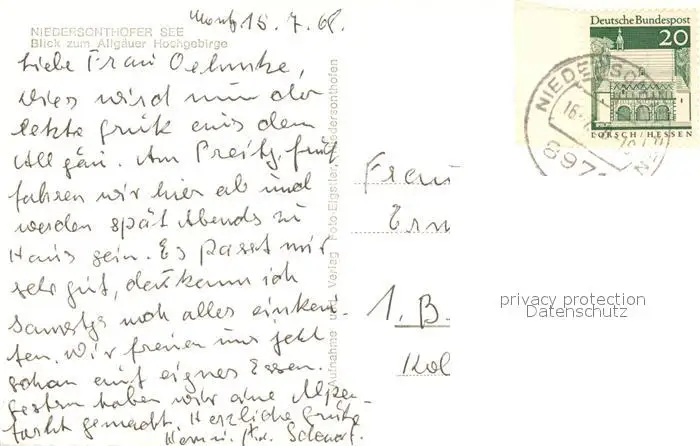 Mont. 15. 7. 68.
NIEDERSONTHOFER SEE
Blick zum Allgäuer Hochgebirge
Liebe Frau Oelmke,
dies wird nun der
letzte Gruß aus dem
Allgäu. Am Freitg. früh
fahren wir hier ab und
werden spät Abends zu
Haus sein. Es passt mir
sehr gut, da kann ich
Samstgs noch alles einkau-
fen. Wir freuen uns jetzt
schon auf eignes Essen.
Gestern haben wir eine Alpen-
fahrt gemacht. Herzliche Grüße
Herm. u.
Aufnahme und Verlag Foto Eigstler, Niedersonthofen
Frau
Erm
1. B.
Kol
Deutsche Bundespost
20
LORSCH / HESSEN
NIEDERSONTH
16.
897
privacy protection
Datenschutz